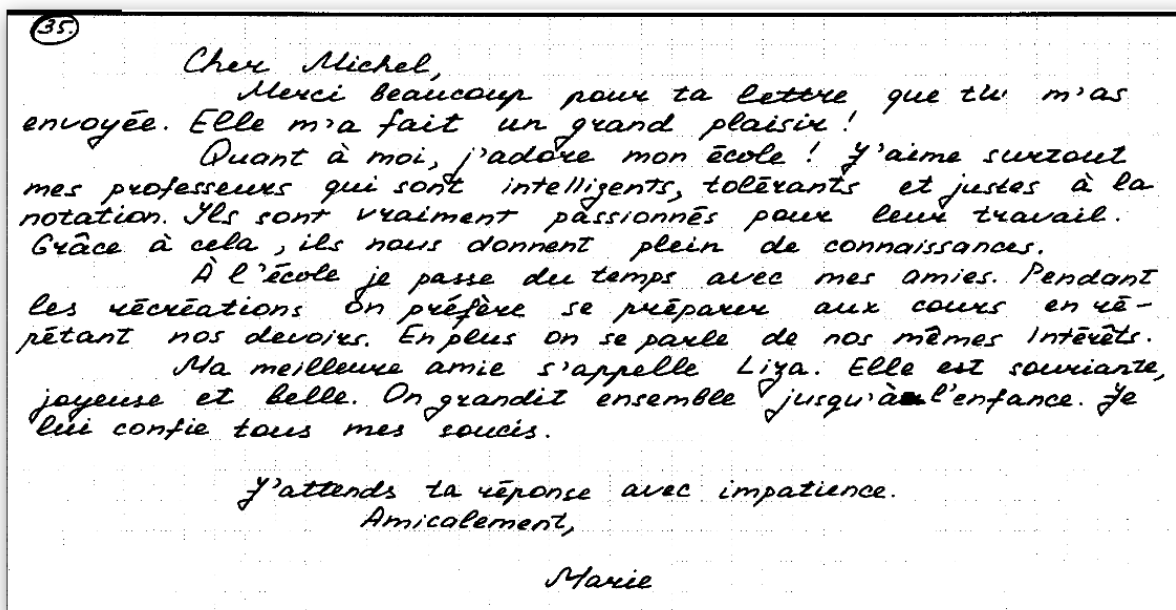 35.
Cher Michel,
Merci beaucoup pour ta lettre que tu m'as
envoyée. Elle m'a fait un grand plaisir !
Quant à moi, j'adore mon école ! J'aime surtout
mes professeurs qui sont intelligents, tolérants et justes à la
notation. Ils sont vraiment passionnés pour leur travail.
Grâce à cela, ils nous donnent plein de connaissances.
À l'école je passe du temps avec mes amies. Pendant
les récréations on préfère se préparer aux cours en ré-
pétant nos devoirs. En plus on se parle de nos mêmes intérêts.
Ma meilleure amie s'appelle Liza. Elle est souriante,
joyeuse et belle. On grandit ensemble jusqu'à l'enfance. Je
lui confie tous mes soucis.
J'attends ta réponse avec impatience.
Amicalement,
Marie